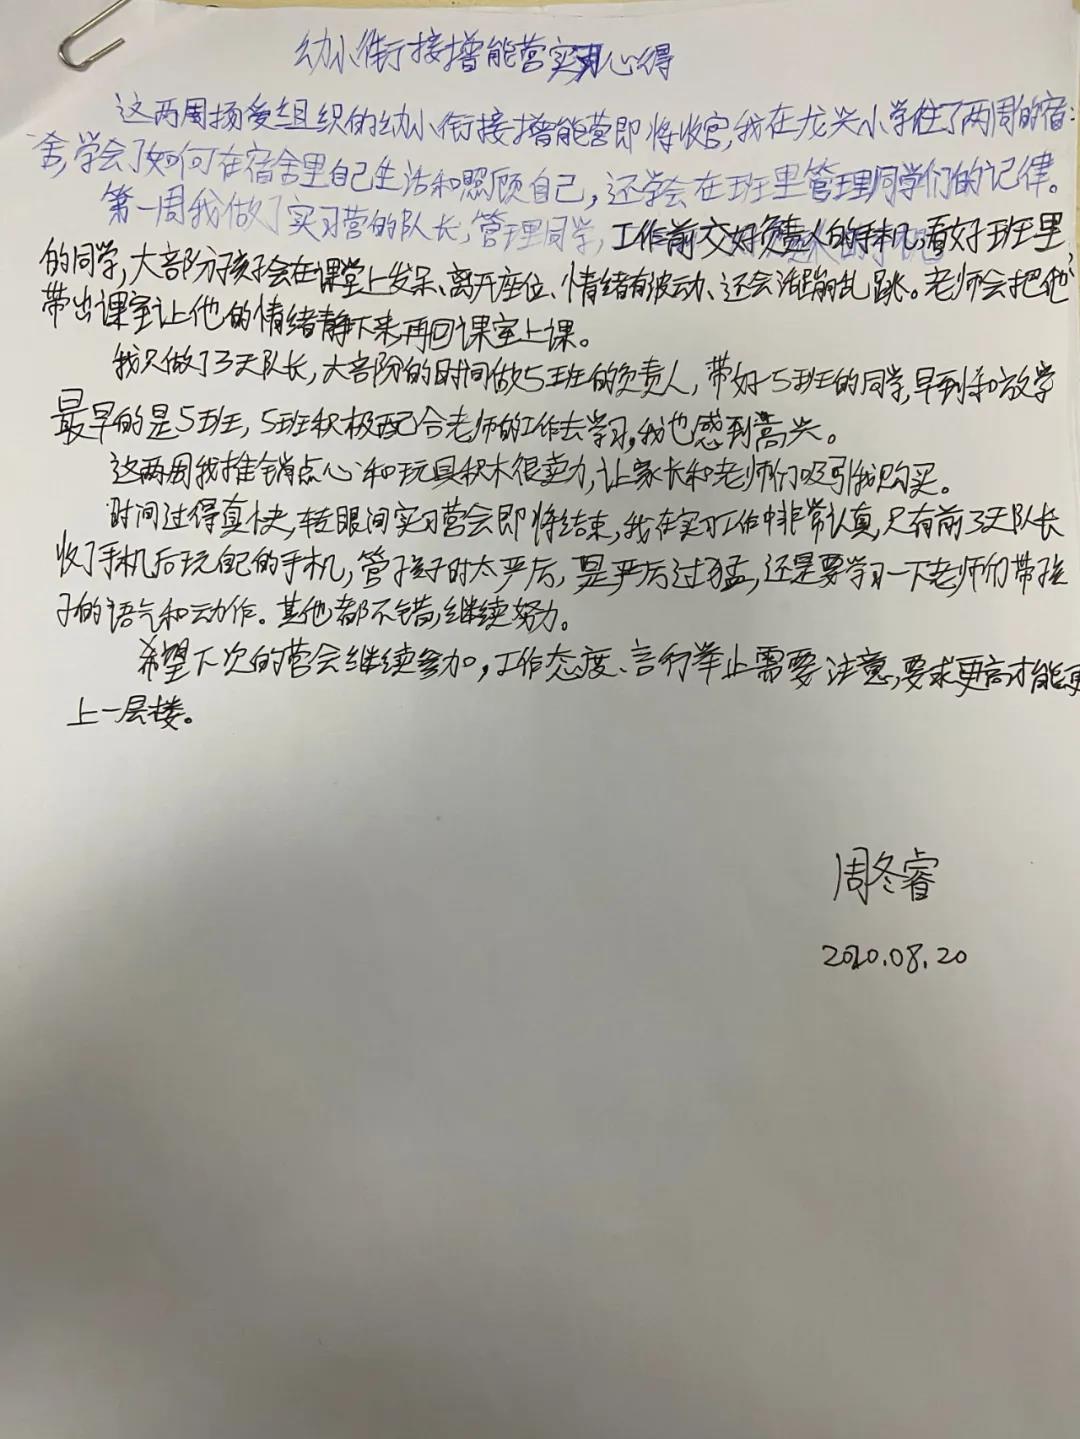 幼小衔接增能营实习心得
这两周扬爱组织的幼小衔接增能营即将收官,我在龙兴小学住了两周的宿
舍,学会了如何在宿舍里自己生活和照顾自己,还学会在班里管理同学们的记律。
第一周我做了实习营的队长,管理同学,工作前交好负责人的手机,看好班里
的同学,大部分孩子会在课堂上发呆、离开座位、情绪有波动、还会活蹦乱跳。老师会把他
带出课室让他的情绪静下来再回课室上课。
我只做了3天队长,大部份的时间做5班的负责人,带好5班的同学,早到和放学
最早的是5班,5班积极配合老师的工作去学习,我也感到高兴。
这两周我推销点心和玩具积木很卖力,让家长和老师们吸引我购买。
时间过得真快,转眼间实习营会即将结束,我在实习工作中非常认真,只有前3天队长
收了手机后玩自己的手机,管孩子时太严厉,是严厉过猛,还是要学习一下老师们带孩
子的语气和动作。其他都不错,继续努力。
希望下次的营会继续参加,工作态度、言行举止需要注意,要求更高才能更
上一层楼。
周冬睿
2020.08.20